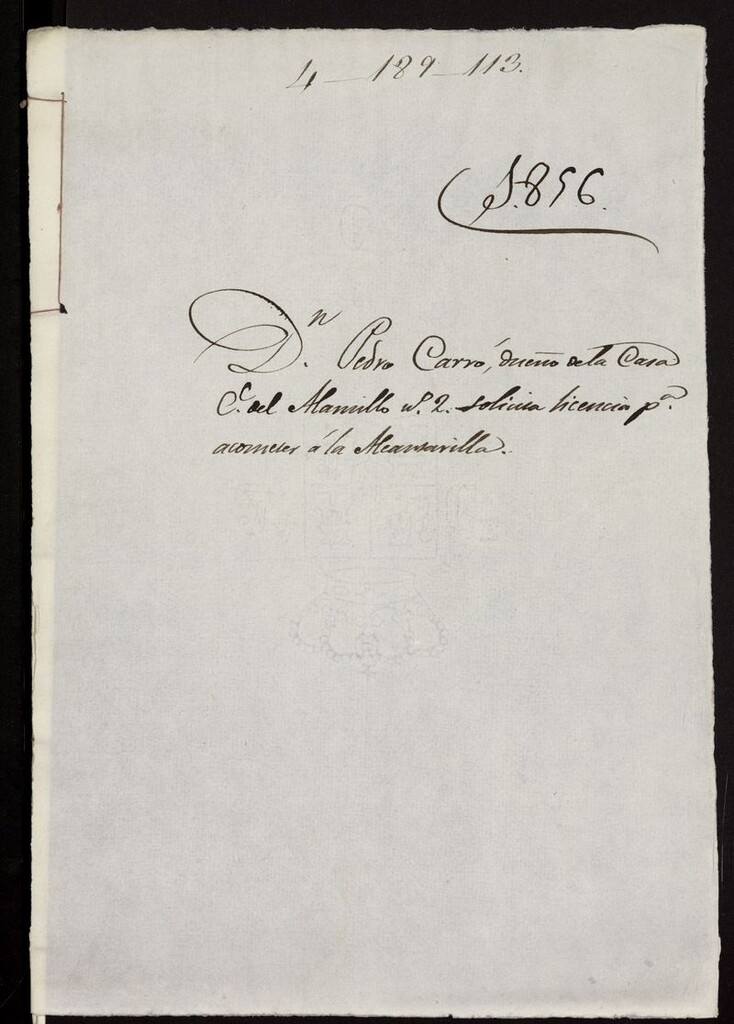 4-189-113.
1.856.
Dn. Pedro Carró, dueño de la Casa
Ce. del Alamillo nº. 2. solicita licencia pa.
acometer á la Alcantarilla.